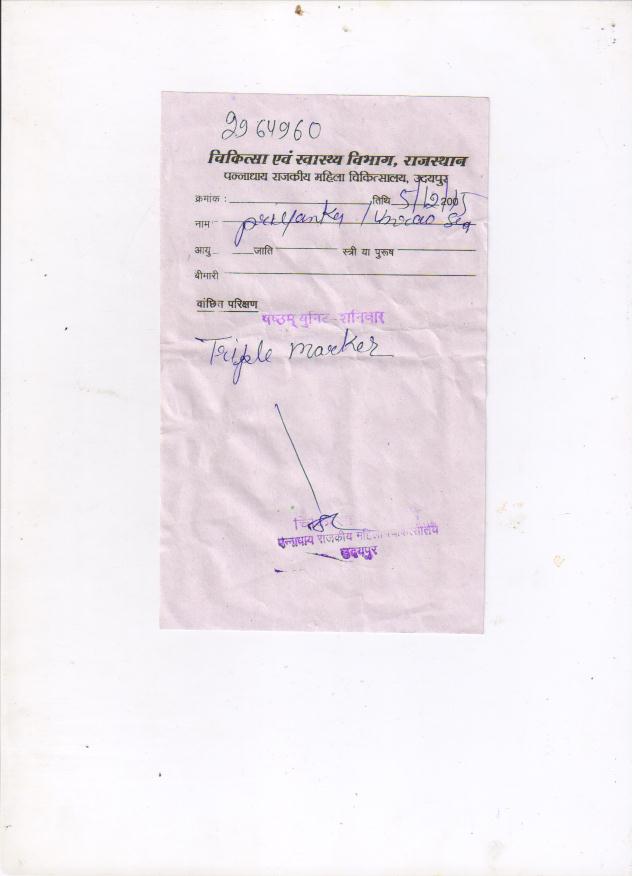 2964960
चिकित्सा एवं स्वास्थ्य विभाग, राजस्थान
पन्नाधाय राजकीय महिला चिकित्सालय, उदयपुर
क्रमांक : तिथि 5/2/
नाम Priyanka /
आयु जाति स्त्री या पुरूष
बीमारी
वांछित परिक्षण
षष्ठम् युनिट-शनिवार
Triple marker
पन्नाधाय राजकीय
उदयपुर